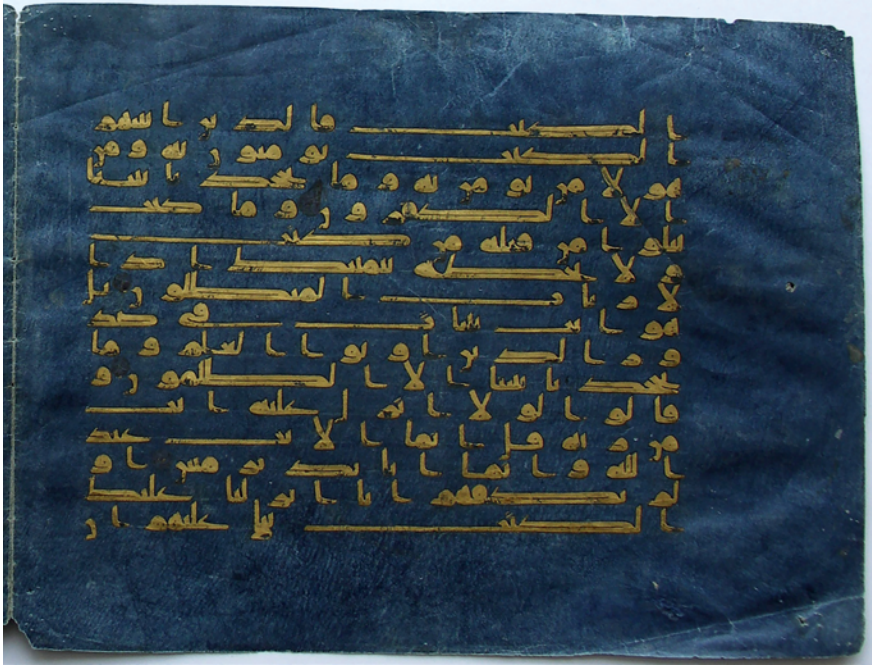 الكتب فالذين اتينهم
الكتب يومنون به ومن
هولا من يومن به وما يجحد بايتنا
الا الكفرون وما كنت
تتلوا من قبله من كتب
ولا تخطه بيمينك اذا
لارتاب المبطلون بل
هو ايت بينت في صد
ور الذين اوتوا العلم وما
يجحد بايتنا الا الظلمون و
قالوا لولا انزل عليه ايت
من ربه قل انما الايت عند
الله وانما انا نذير مبين او
لم يكفهم انا انزلنا عليك
الكتب يتلى عليهم ان